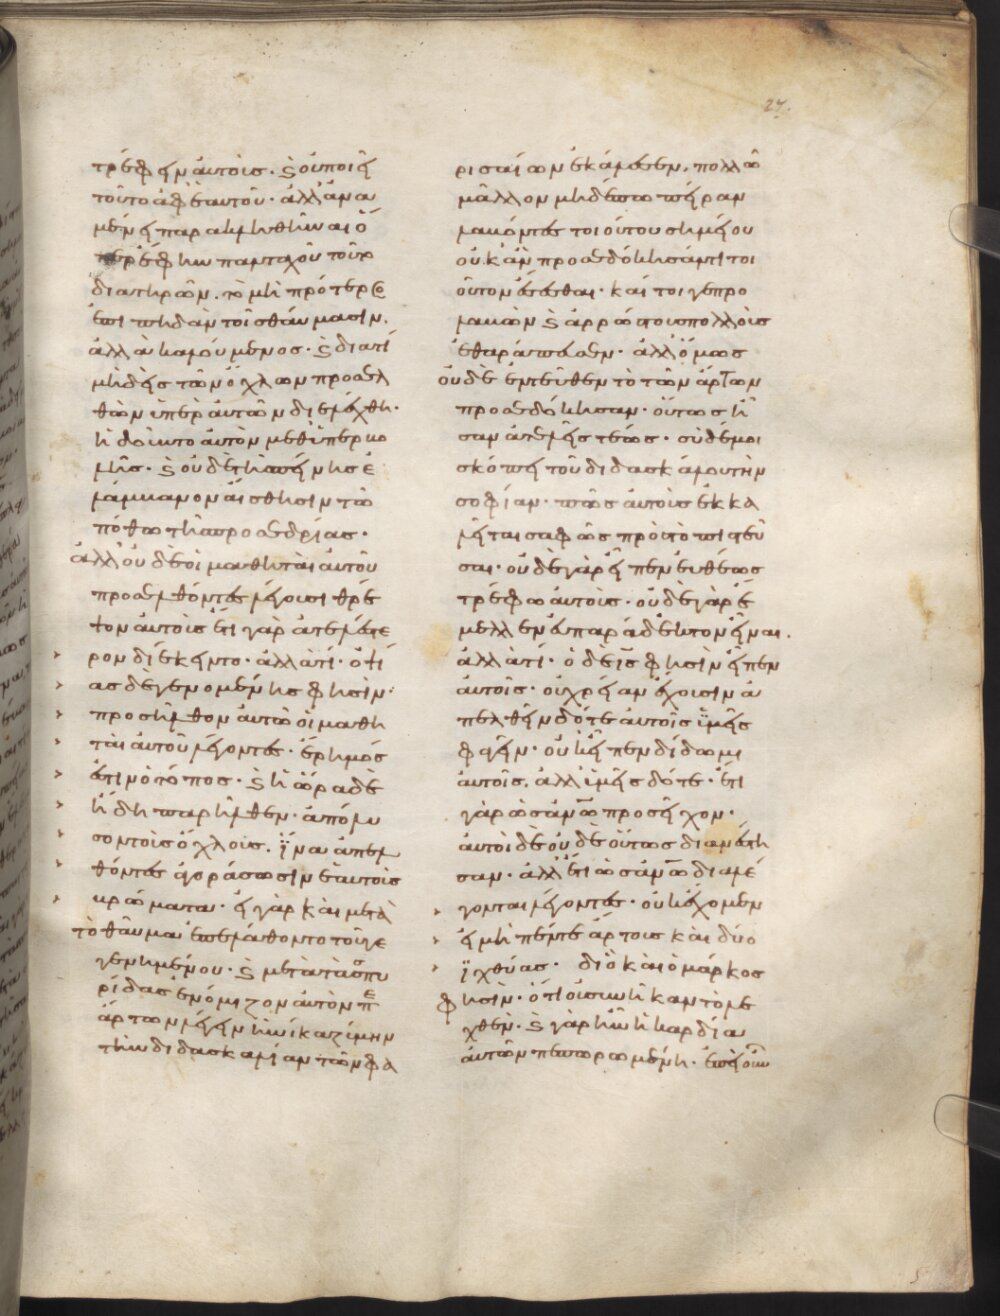 τρέφειν αὐτούς· ϗ οὐ ποιεῖ
τοῦτο ἀφ' ἑαυτοῦ· ἀλλ' ἀνα
μένει παρακληθῆναι ὅ
περ ἔφην πανταχοῦ τοῦτο
διατηρῶν. τὸ μὴ πρότερος
ἐπιπηδὰν τοῖς θαύμασιν.
ἀλλὰ καλούμενος· ϗ διατί
μηδεὶς τῶν ὄχλων προσελ
θὼν ὑπὲρ αὐτῶν διελέχθη·
ἠδοῦντο αὐτὸν μεθ' ὑπερβο
λῆς· ϗ οὐδὲ τῆς πείνης ἐ
λάμβανον αἴσθησιν τῶ
πόθω τῆς προσεδρίας·
ἀλλ' οὐδὲ οἱ μαθηταὶ αὐτοῦ
προσελθόντες λέγουσι θρέ
ψον αὐτούς ἔτι γὰρ ἀτελέστε
ρον διέκειντο· ἀλλὰ τί· ὀψί
ας δὲ γενομένης φησίν·
προσῆλθον αὐτῶ οἱ μαθη
ταὶ αὐτοῦ λέγοντες· ἔρημός
ἐστιν ὁ τόπος· ϗ ἡ ὥρα δὲ
ἤδη παρῆλθεν· ἀπόλυ
σον τοὺς ὄχλους. ἵνα ἀπελ
θόντες ἀγοράσωσιν ἑαυτοῖς
βρώματα· εἰ γὰρ καὶ μετὰ
τὸ θαῦμα ἐπελάθοντο τοῦ γε
γενημένου· ϗ μετὰ τὰς σπυ
ρίδας ἐνόμιζον αὐτὸν πε
ἄρτων λέγειν ἡνίκα ζύμην
τὴν διδασκαλίαν τῶν φα
ρισαίων ἐκάλεσεν. πολλῶ
μᾶλλον μηδέπω πεῖραν
λαβόντες τοιούτου σημείου
οὐκ ἂν προσεδόκησάν τι τοι
οῦτον ἔσεσθαι· καί τοι γε προ
λαβὼν ϗ ἀρρώστους πολλοὺς
ἐθεράπευσεν· ἀλλ' ὅμως
οὐδὲ ἐντεῦθεν τὸ τῶν ἄρτων
προσεδόκησαν· οὕτως ἦ
σαν ἀτελεῖς τέως· σὺ δέ μοι
σκόπει τοῦ διδασκάλου τὴν
σοφίαν· πῶς αὐτοὺς ἐκκα
λεῖται σαφῶς πρὸς τὸ πιστεῦ
σαι· οὐδὲ γὰρ εἶπεν εὐθέως
τρέφω αὐτούς· οὐδὲ γὰρ ἔ
μελλεν εὐπαράδεκτον εἶναι.
ἀλλὰ τί· ὁ δὲ ις φησὶν εἶπεν
αὐτοῖς· οὐ χρείαν ἔχουσιν ἀ
πελθεῖν δότε αὐτοῖς ὑμεῖς
φαγεῖν· οὐκ εἶπεν δίδωμι
αὐτοῖς. ἀλλ' ὑμεῖς δότε· ἔτι
γὰρ ὡς ἀνω προσεῖχον·
αὐτοὶ δὲ οὐδὲ οὕτως διανέστη
σαν· ἀλλ' ἔτι ὡς ἀνω διαλέ
γονται λέγοντες· οὐκ ἔχομεν
εἰ μὴ πέντε ἄρτους καὶ δύο
ἰχθύας· διὸ καὶ ὁ μάρκος
φησίν· ὅτι οὐ συνῆκαν τὸ λε
χθέν· ϗ γὰρ ἦν ἡ καρδία
αὐτῶν πεπωρωμένη· ἐπεὶ οὖν